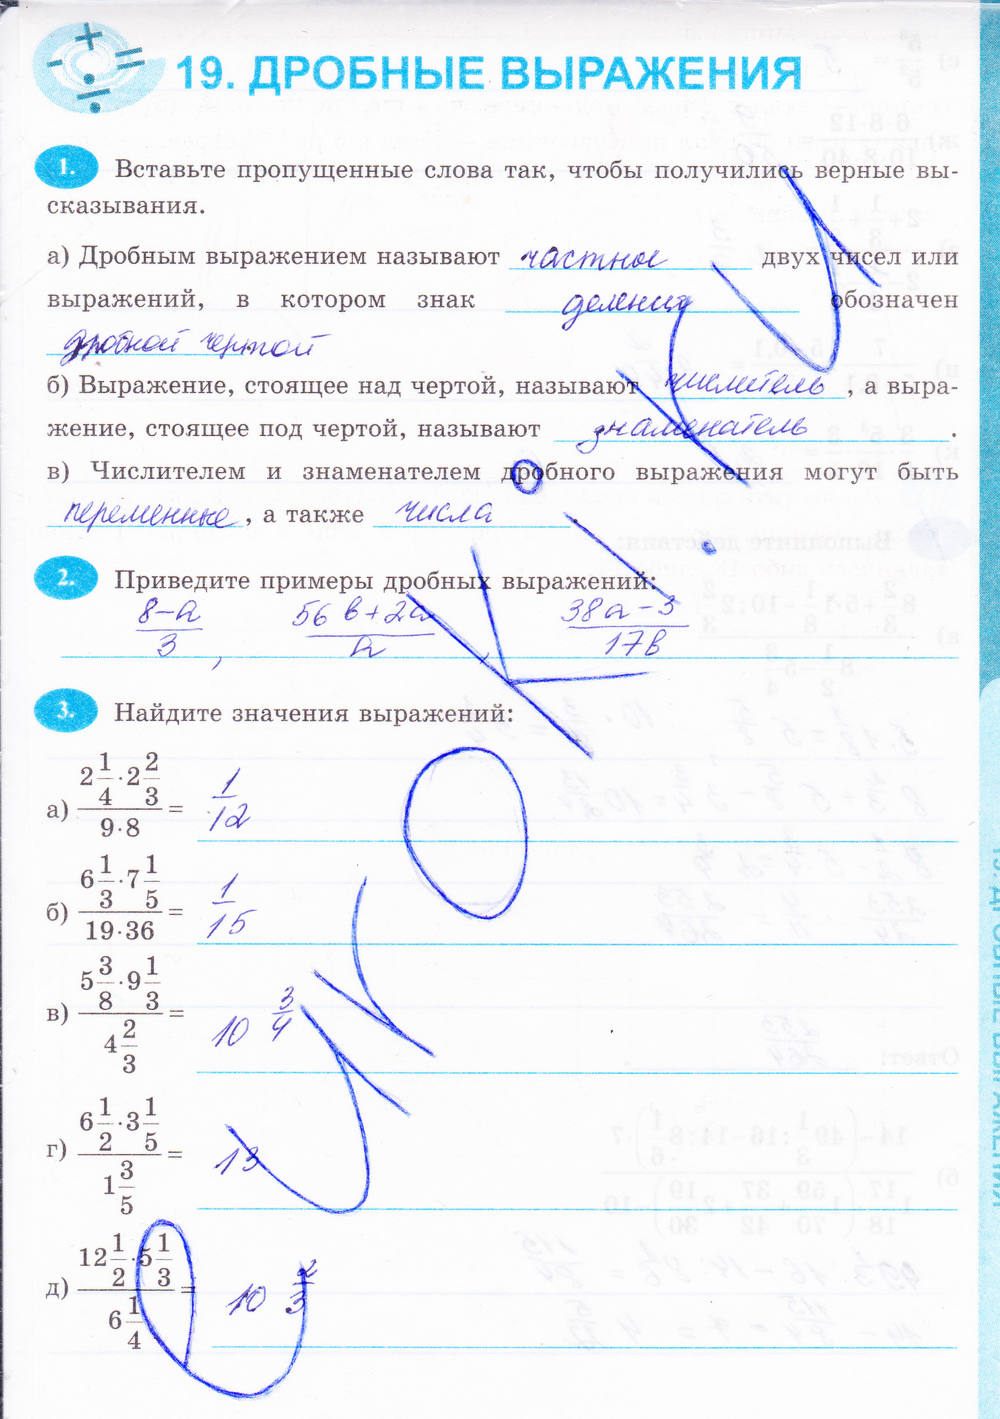 19. ДРОБНЫЕ ВЫРАЖЕНИЯ
1. Вставьте пропущенные слова так, чтобы получились верные вы-
сказывания.
а) Дробным выражением называют частное двух чисел или
выражений, в котором знак деления обозначен
дробной чертой
б) Выражение, стоящее над чертой, называют числитель, а выра-
жение, стоящее под чертой, называют знаменатель.
в) Числителем и знаменателем дробного выражения могут быть
переменные, а также числа.
2. Приведите примеры дробных выражений:
8-a/3, 56b+2a/a, 38a-3/17b
3. Найдите значения выражений:
а) 2 1/4 · 2 2/3 / 9·8 = 1/12
б) 6 1/3 · 7 1/5 / 19·36 = 1/15
в) 5 3/8 · 9 1/3 / 4 2/3 = 10 3/4
г) 6 1/2 · 3 1/5 / 1 3/5 = 13
д) 12 1/2 · 5 1/3 / 6 1/4 = 10 2/3
19. ДРОБНЫЕ ВЫРАЖЕНИЯ